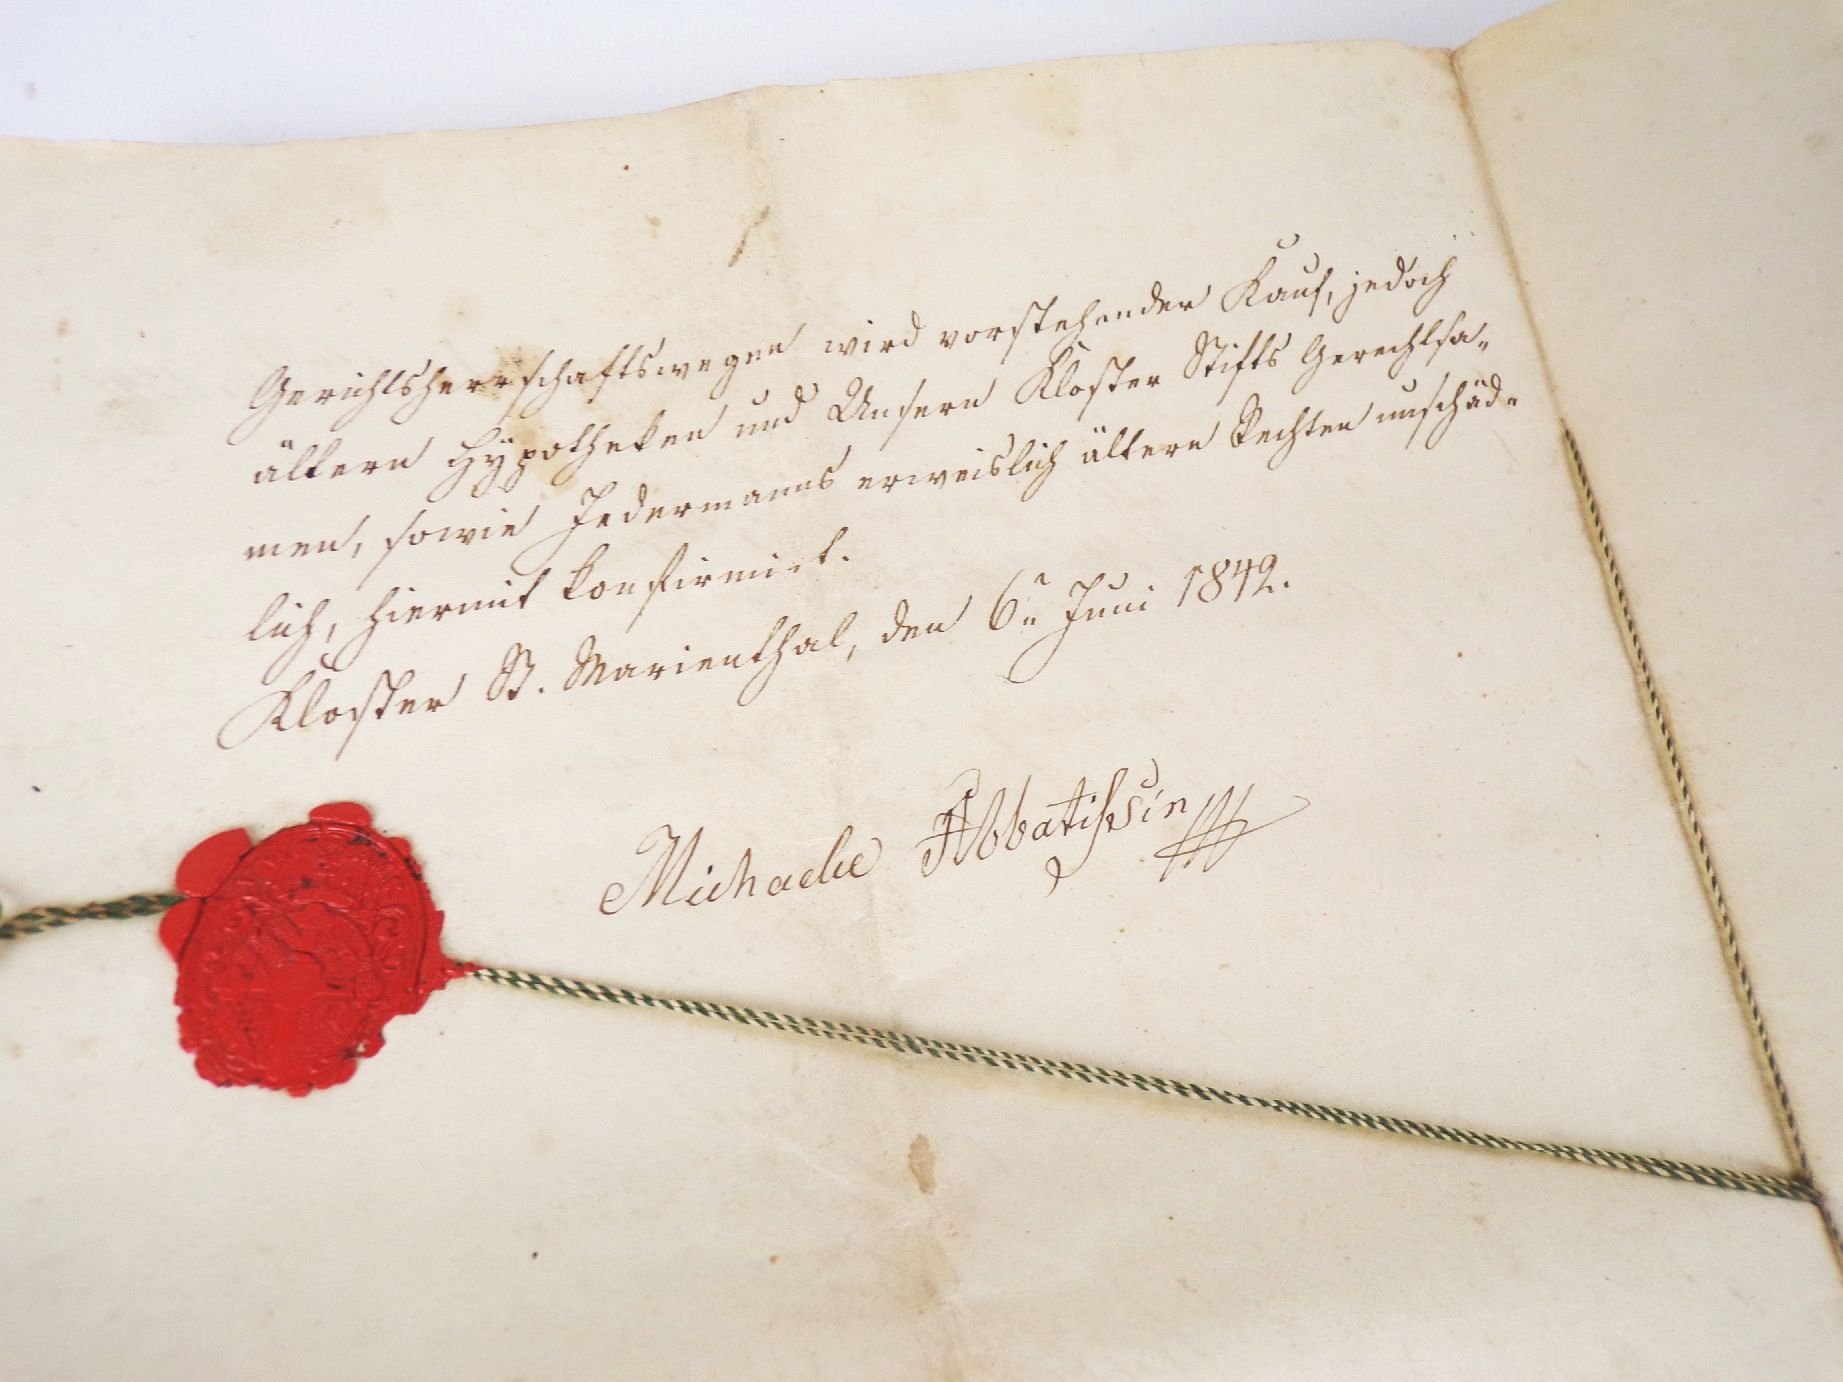 Gerichtsherrschaftswegen wird vorstehender Kauf, jedoch
ältern Hÿpotheken und Unsern Kloster Stifts Gerechtsa-
men, sowie Jedermanns erweislich ältern Rechten unschäd-
lich, hiermit konfirmirt.
Kloster St. Marienthal, den 6n Juni 1842.
Michaele Abbatißsin